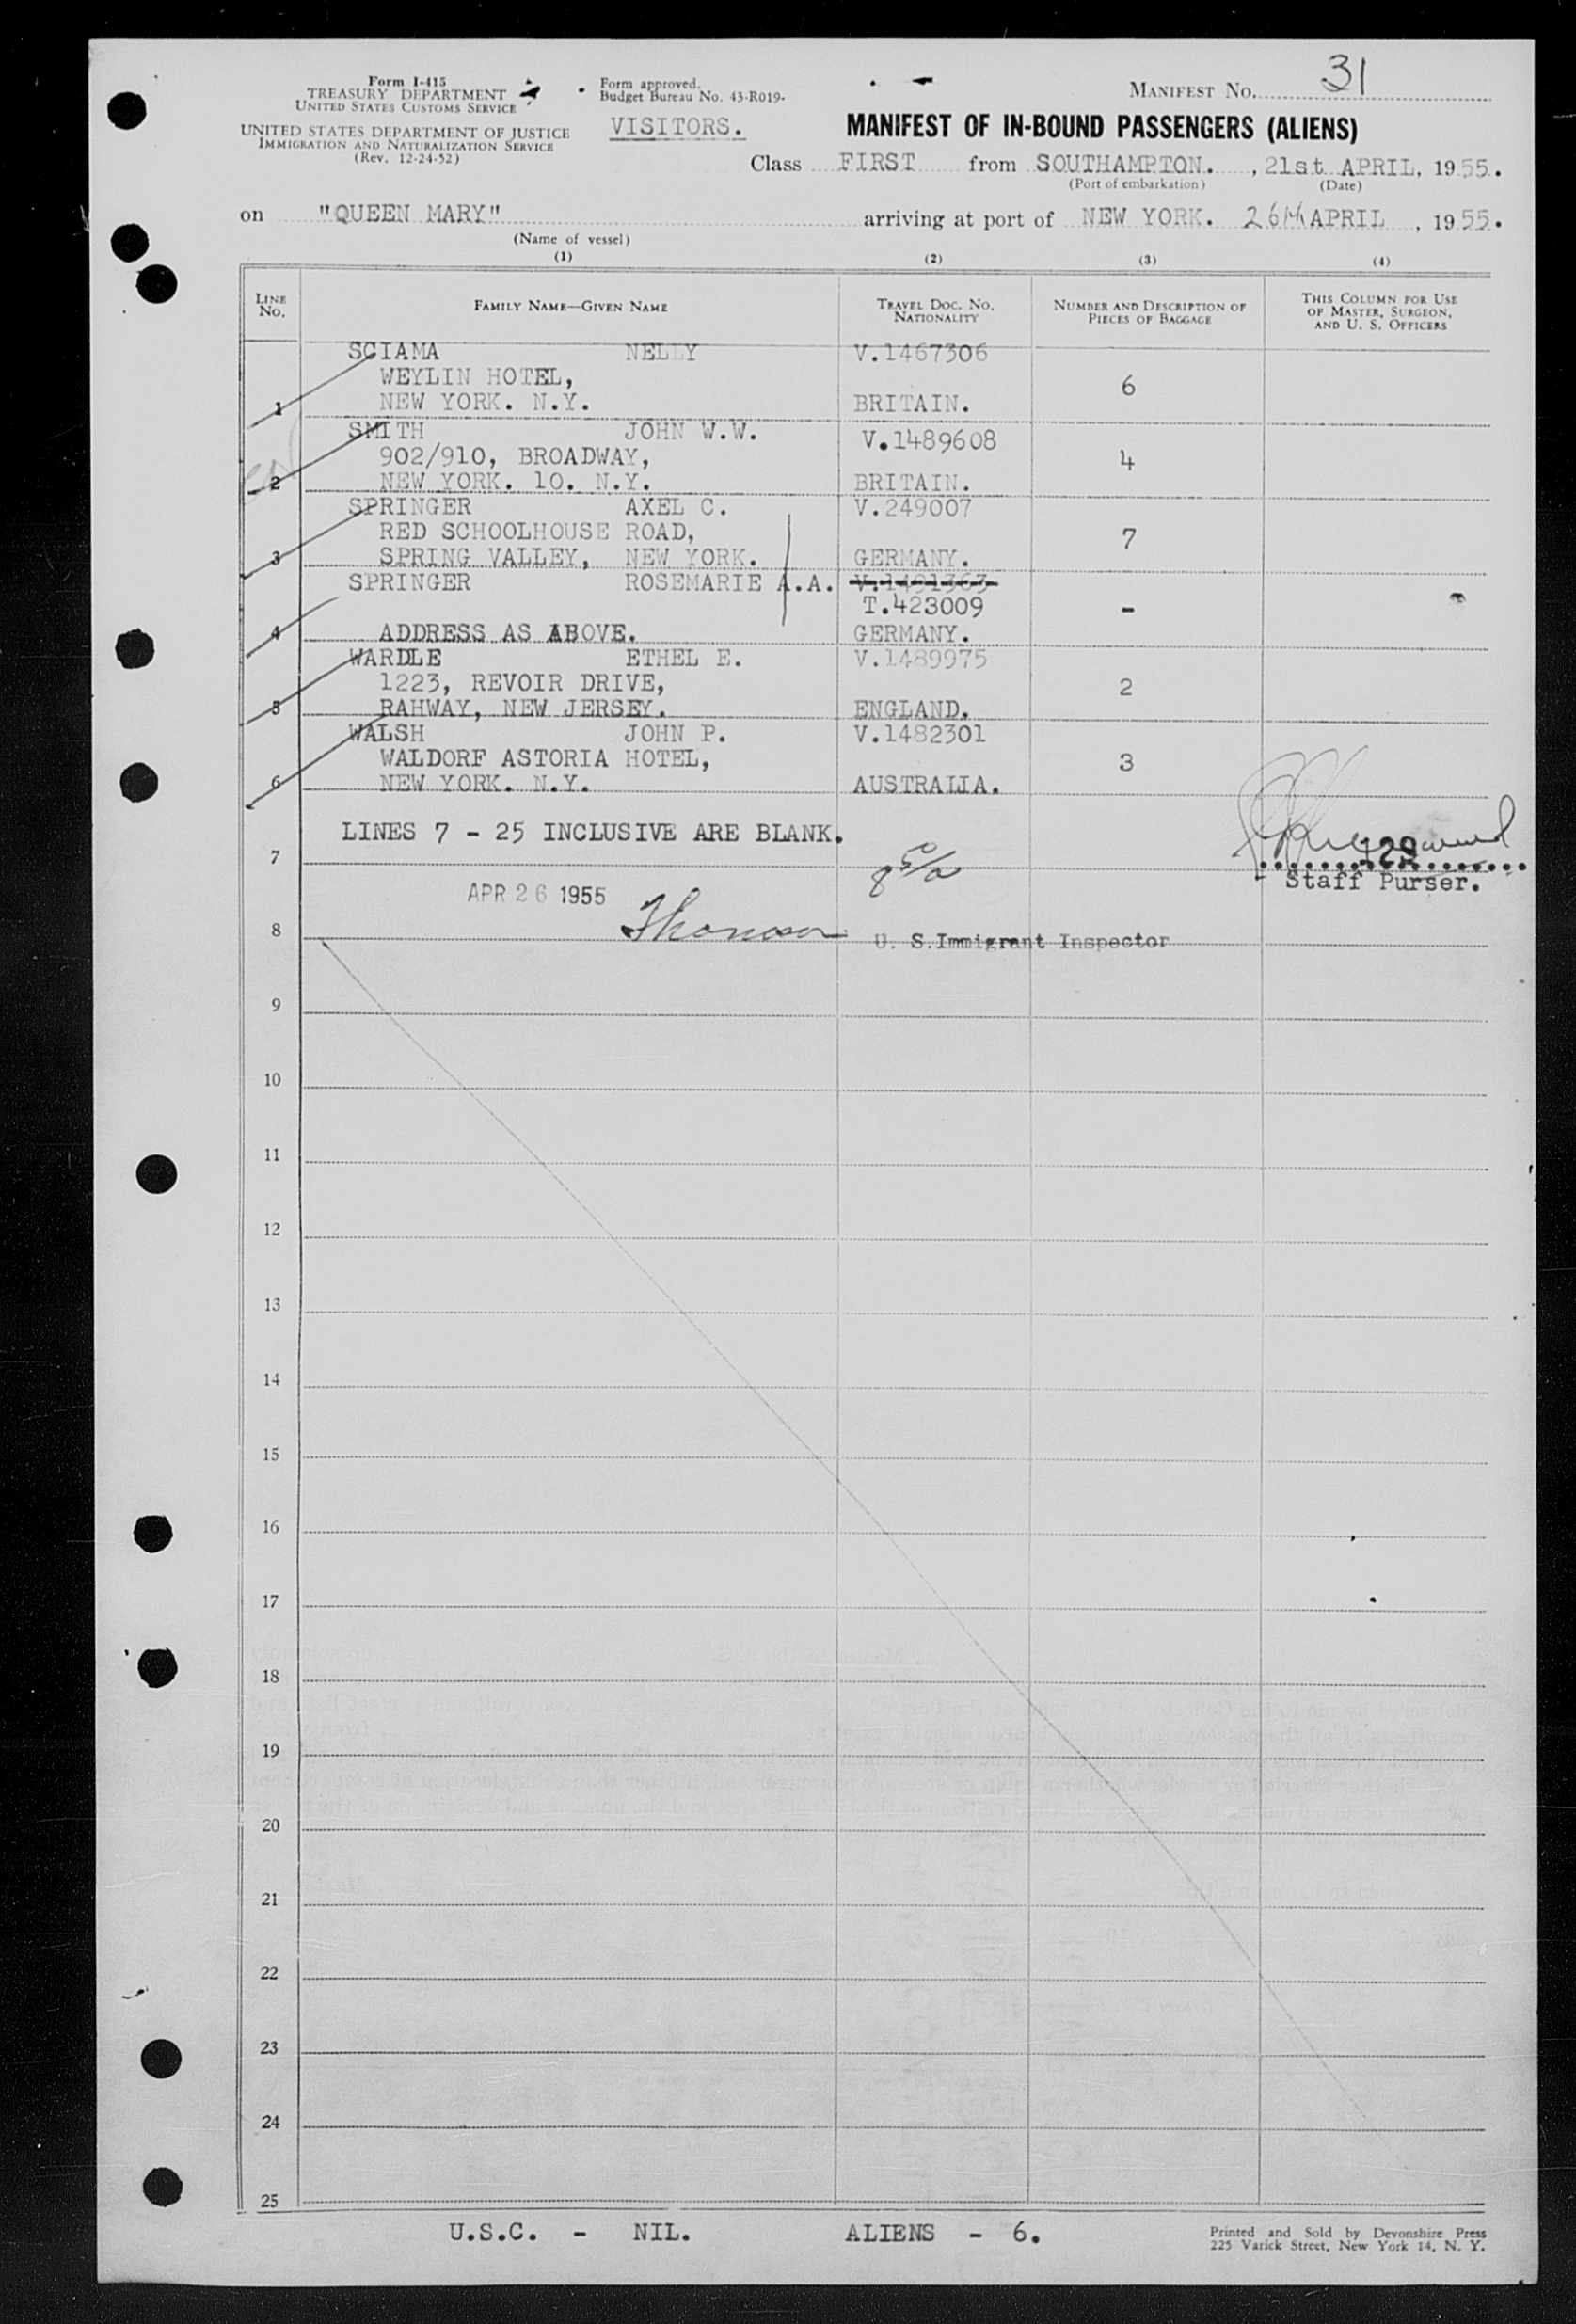 Form I-415
TREASURY DEPARTMENT
UNITED STATES CUSTOMS SERVICE
UNITED STATES DEPARTMENT OF JUSTICE
IMMIGRATION AND NATURALIZATION SERVICE
(Rev. 12-24-52)
Form approved.
Budget Bureau No. 43-R019-
VISITORS.
MANIFEST NO. 31
MANIFEST OF IN-BOUND PASSENGERS (ALIENS)
Class FIRST from SOUTHAMPTON. , 21st APRIL, 1955.
(Port of embarkation) (Date)
on "QUEEN MARY" arriving at port of NEW YORK. 26th APRIL , 1955.
(Name of vessel)
(1) (2) (3) (4)
LINE NO. FAMILY NAME—GIVEN NAME TRAVEL DOC. NO. NATIONALITY NUMBER AND DESCRIPTION OF PIECES OF BAGGAGE THIS COLUMN FOR USE OF MASTER, SURGEON, AND U. S. OFFICERS
SCIAMA NELLY V.1467306
WEYLIN HOTEL, 6
1 NEW YORK. N.Y. BRITAIN.
SMITH JOHN W.W. V.1489608
902/910, BROADWAY, 4
2 NEW YORK. 10. N.Y. BRITAIN.
SPRINGER AXEL C. V.249007
RED SCHOOLHOUSE ROAD, 7
3 SPRING VALLEY, NEW YORK. GERMANY.
SPRINGER ROSEMARIE A.A. V.1491363
T.423009 -
4 ADDRESS AS ABOVE. GERMANY.
WARDLE ETHEL E. V.1489975
1223, REVOIR DRIVE, 2
5 RAHWAY, NEW JERSEY. ENGLAND.
WALSH JOHN P. V.1482301
WALDORF ASTORIA HOTEL, 3
6 NEW YORK. N.Y. AUSTRALIA.
LINES 7 - 25 INCLUSIVE ARE BLANK.
7
129
Staff Purser.
APR 26 1955
8 Thomson U. S. Immigrant Inspector
9
10
11
12
13
14
15
16
17
18
19
20
21
22
23
24
25
U.S.C. - NIL. ALIENS - 6.
Printed and Sold by Devonshire Press
225 Varick Street, New York 14, N. Y.